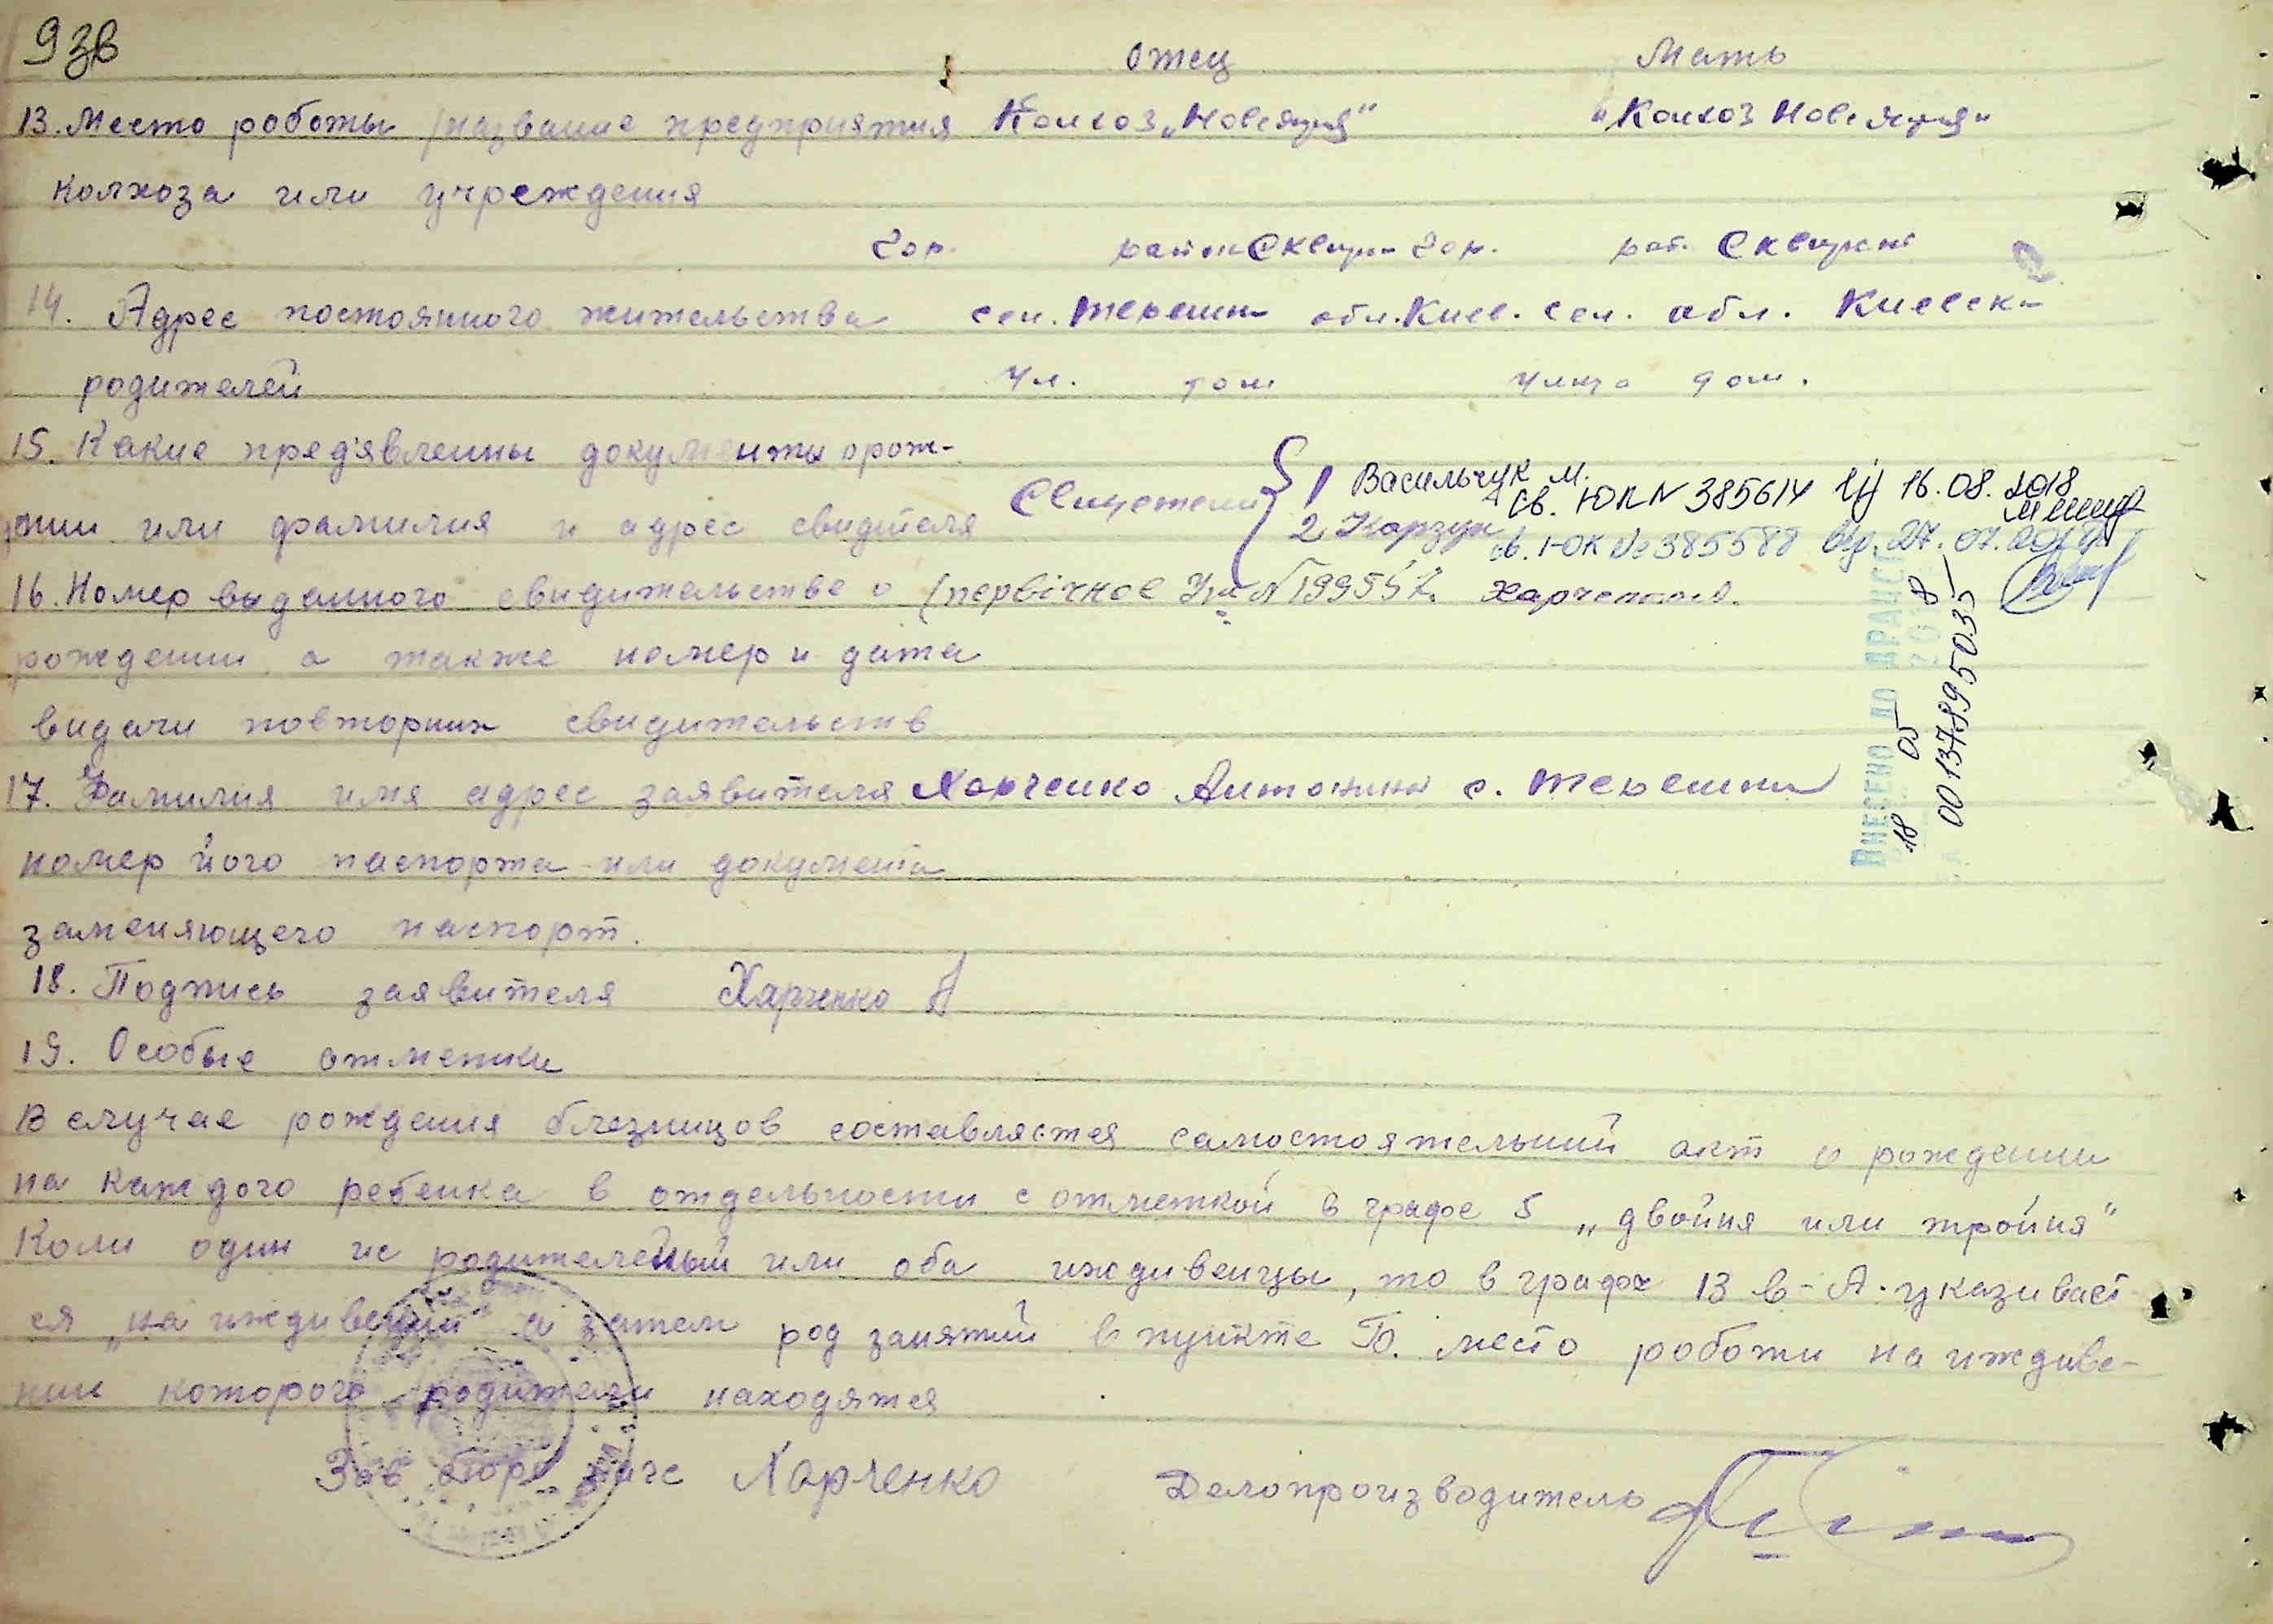 9зв
Отец Мать
13. Место роботы (название предприятия Колхоз „Нове життя" "Колхоз Нове життя"
колхоза или учреждения
гор. район Сквир гор. рай. Сквирск
14. Адрес постоянного жительства сел. Терешки обл. Киев. сел. обл. Киевск
родителей ул. дом улица дом.
15. Какие предявленны документы орож-
Свидетели 1 Васильчук М. св. ЮК № 385614 16.08.2018
дении или фамилия и адрес свидителя 2 Корзун св. ЮК № 385588 вид. 27.07.2018
16. Номер выданного свидительстве о (первічное № 19955
рождении а также номер и дата
видачи повторних свидительств
17. Фамилия имя адрес заявителя Харченко Антонина с. Терешки
номер його паспорта или документа
заменяющего паспорт.
18. Подпись заявителя Харченко А
19. Особые отметки
В случае рождения близницов составляется самостоятельний акт о рождении
на каждого ребенка в отдельности с отметкой в графе 5 „двойня или тройня"
Коли один ис родителей или оба иждивенцы, то в графе 13 в-А. указивает
ся „на иждивении" а затем род занятий в пункте Б. место роботи на иждиве-
нии которого родители находятся
Зав бюро загс Харченко Делопроизводитель
ВНЕСЕНО ДО ДРАЦСГ
18 05 2018
00137895035